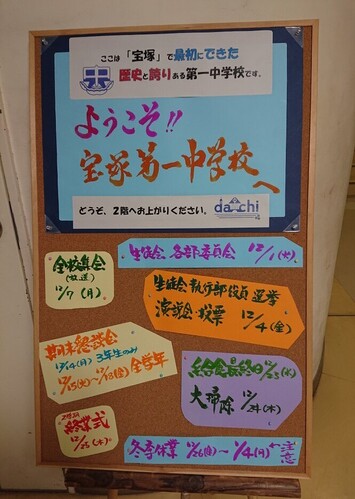 ここは「宝塚」で最初にできた
歴史と誇りある第一中学校です。
ようこそ!!
宝塚第一中学校
へ
どうぞ、2階へお上がりください。
daichi
全校集会
(放送)
12/7(月)
生徒会 各部・委員会 12/1(火)
生徒会執行部役員選挙
演説会・投票 12/4(金)
期末懇談会
12/14(月) 3年生のみ
12/15(火)~12/18(金)全学年
給食最終日12/23(水)
大掃除 12/24(木)
2学期
終業式
12/25(木)
冬季休業 12/26(土)~1/4(月)
注意